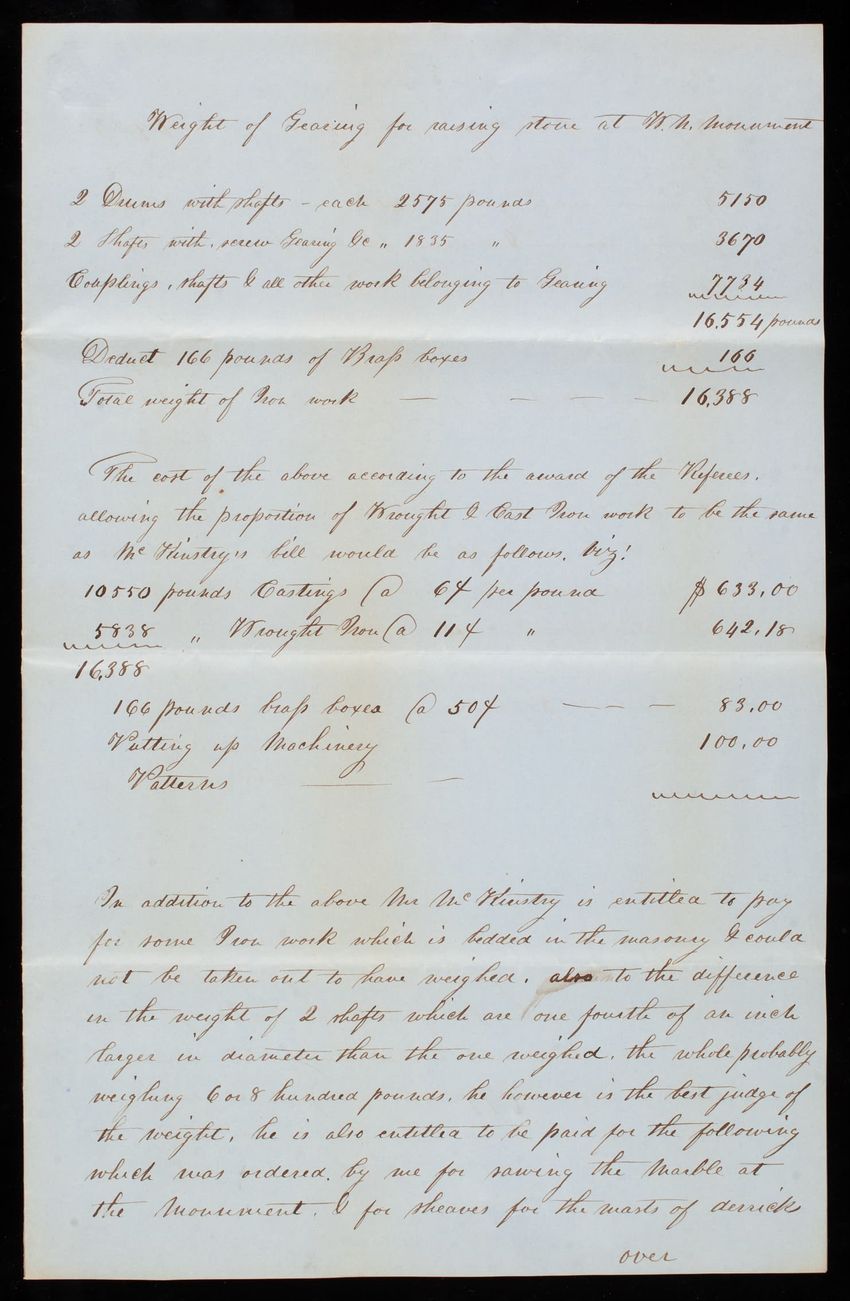 Weight of Gearing for raising stone at W. N. Monument
2 Drums with shafts - each 2575 pounds 5150
2 Shafts with screw Gearing &c " 1835 " 3670
Couplings, shafts & all other work belonging to Gearing 7734
16,554 pounds
Deduct 166 pounds of Brass boxes 166
Total weight of Iron work — — — — 16,388
The cost of the above according to the award of the Referees,
allowing the proportion of Wrought & Cast Iron work to be the same
as Mc Kinstry's bill would be as follows, viz!
10550 pounds Castings @ 6¢ per pound $633,00
5838 " Wrought Iron @ 11¢ " 642,18
16,388
166 pounds brass boxes @ 50¢ — — — 83,00
Putting up Machinery 100,00
Patterns — —
In addition to the above Mr Mc Kinstry is entitled to pay
for some Iron work which is bedded in the masonry & could
not be taken out to have weighed, also to the difference
in the weight of 2 shafts which are one fourth of an inch
larger in diameter than the one weighed, the whole probably
weighing 6 or 8 hundred pounds, he however is the best judge of
the weight, he is also entitled to be paid for the following
which was ordered by me for sawing the Marble at
the Monument, & for sheaves for the masts of derricks
over